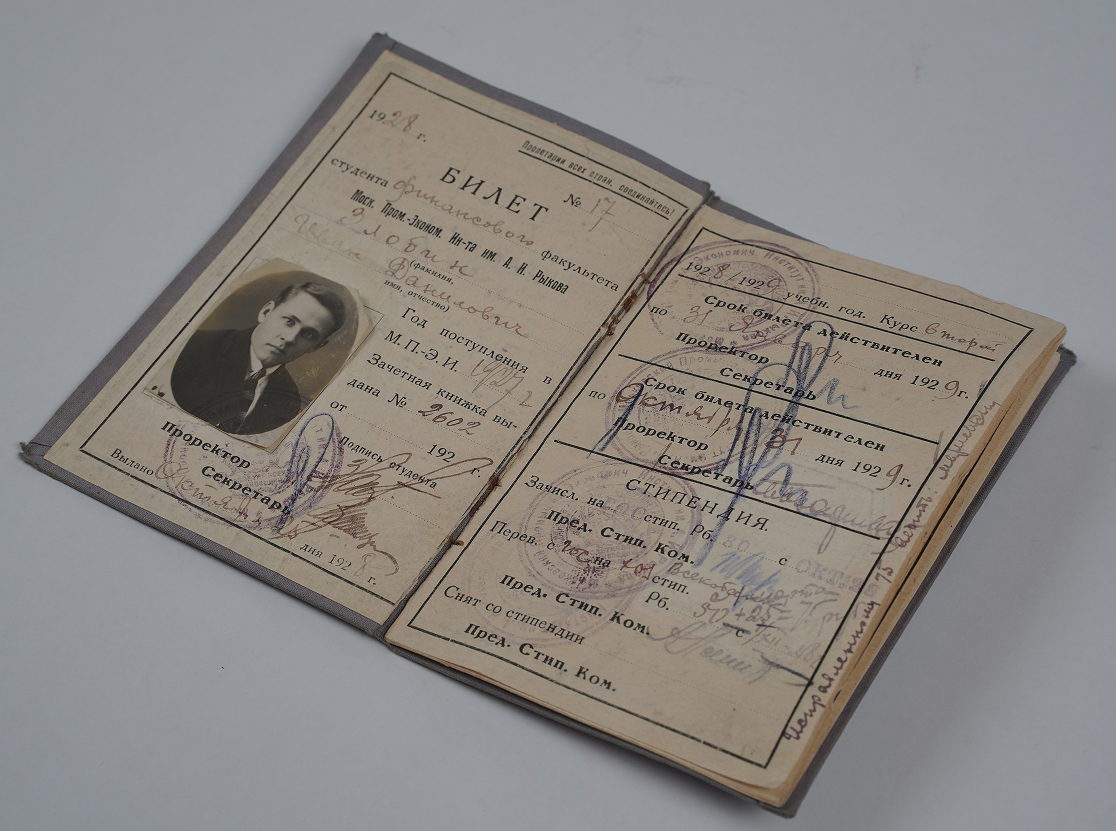 1928 г.
Пролетарии всех стран, соединяйтесь!
БИЛЕТ № 17
студента финансового факультета
Моск. Пром.-Эконом. Ин-та им. А. И. Рыкова
Злобин
Иван Данилович
(фамилия,
имя, отчество)
Год поступления в
М.П.-Э.И. 1927 г
Зачетная книжка вы-
дана № 2602
от 192 г.
Подпись студента
Проректор
Секретарь
Выдано Октября дня 1928 г.
1928/1929 учебн. год. Курс второй
Срок билета действителен
по 31 дня 1929 г.
Проректор
Секретарь
Срок билета действителен
по Октября 31 дня 1929 г.
Проректор
Секретарь
СТИПЕНДИЯ.
Зачисл. на стип. Рб. 30 с
Пред. Стип. Ком.
Перев. с гос на хоз стип. Рб. 50+25= с
Пред. Стип. Ком.
Снят со стипендии
Пред. Стип. Ком.
Исправленному 75 верить.